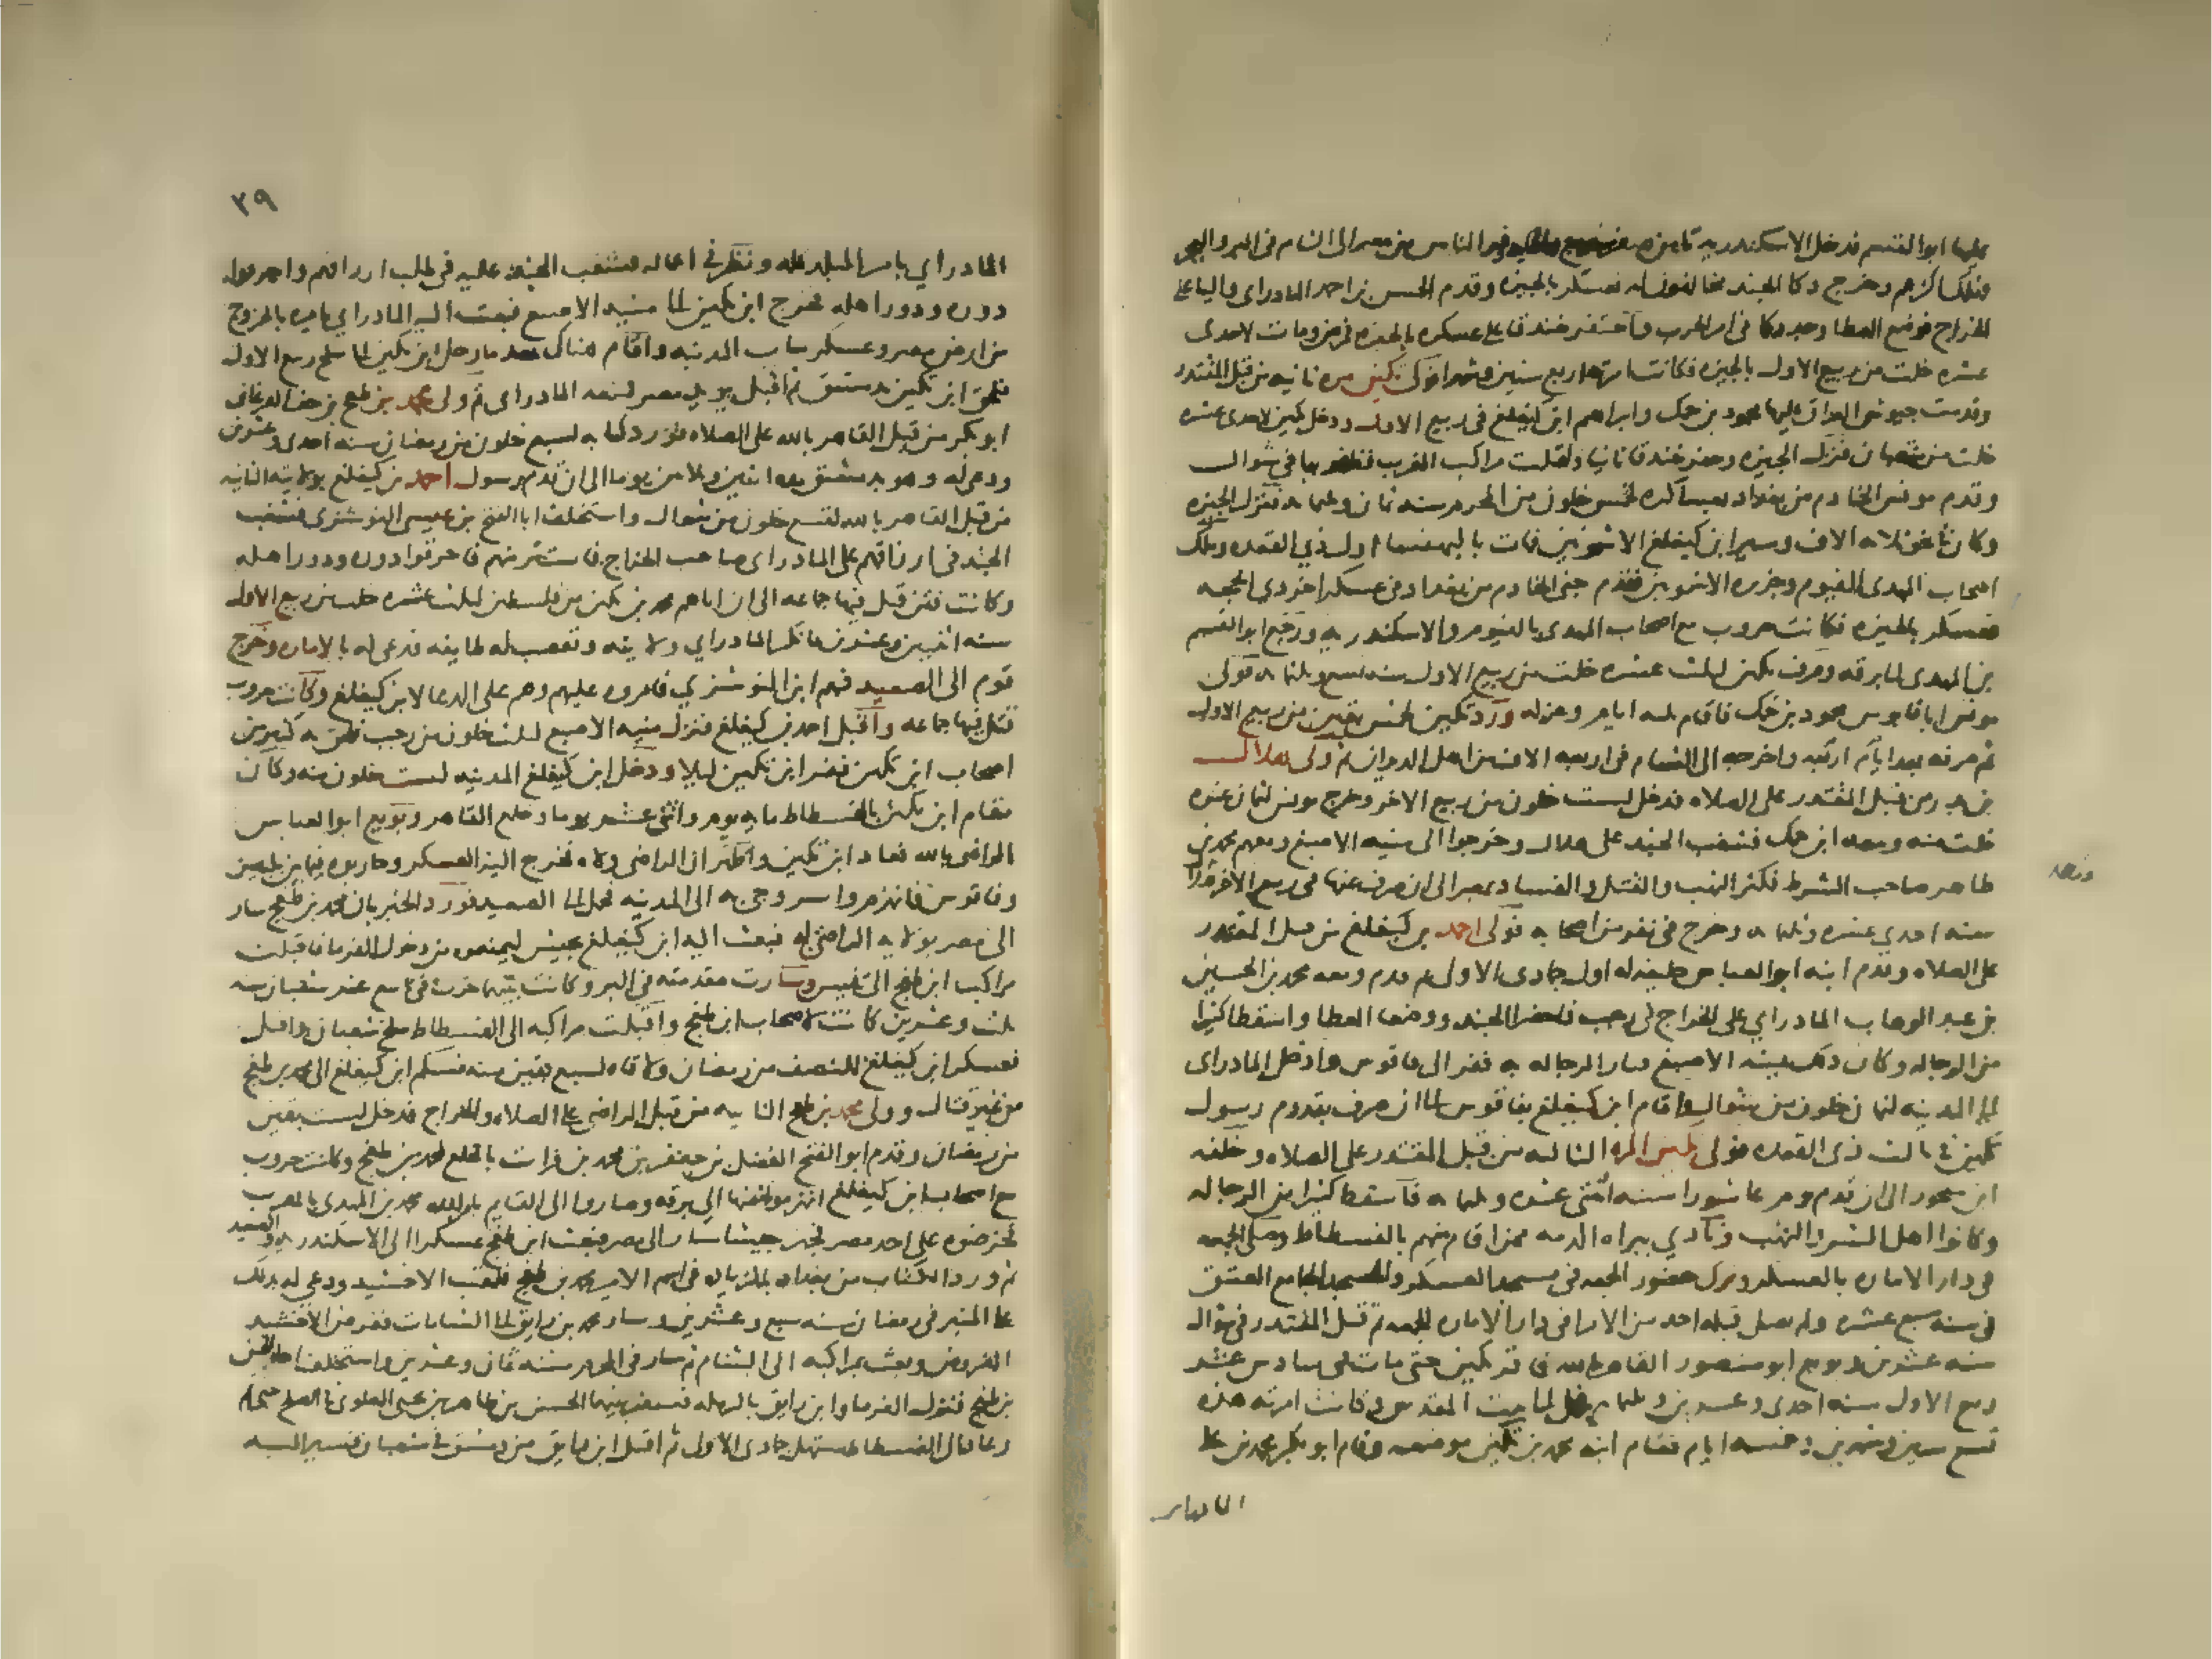 عليها ابو القسم فدخل الاسكندريه ثامن صفر الناس من مصر الى الشام فى البر والبحر
فهلك اكثرهم وخرج دكا الجند مخالفون له فعسكر بالجيزه وقدم الحسين بن احمد المادراى واليا على
الخراج فوضع العطا وجد دكا فى امر الحرب واحتفر خندقا على عسكره بالجيزه فمرض ومات لاحدى
عشره خلت من ربيع الاول بالجيزه فكانت امرته اربع سنين وشهرا فولى تكين مره ثانيه من قبل المقتدر
وقدمت جيوش العراق عليها محمود بن حمك وابراهيم ابن كيغلغ فى ربيع الاول ودخل تكين لاحدى عشره
خلت من شعبان فنزل الجيزه وحفر خندقا ثانيا واقبلت مراكب المغرب فظفر بها فى شوال
وقدم مونس الخادم من بغداد بعساكره لخمس خلون من المحرم سنه ثمان وثلثمايه فنزل الجيزه
وكان فى نحو ثلاثه الاف وسير ابن كيغلغ الاشمونين فمات بالبهنسا اول ذي القعده وملك
اصحاب المهدى الفيوم وجزيره الاشمونين فقدم جنى الخادم من بغداد فى عسكر اخر ذي الحجه
فعسكر بالجيزه فكانت حروب مع اصحاب المهدى بالفيوم والاسكندريه ورجع ابو القسم
بن المهدى الى برقه وصرف تكين لثلث عشره خلت من ربيع الاول سنه تسع وثلثمايه فولى
مونس ابا قابوس محمود بن حمك فاقام ثلثه ايام وعزله ورد تكين لخمس بقين من ربيع الاول
ثم صرفه بعد ايام اربعه واخرجه الى الشام فى اربعه الاف من اهل الديوان ثم ولى هلال
بن بدر من قبل المقتدر على الصلاه فدخل لست خلون من ربيع الاخر وخرج مونس لثمان عشره
خلت منه ومعه ابن حمك فشغب الجند على هلال وخرجوا الى منيه الاصبغ ومعهم محمد بن
طاهر صاحب الشرط فكثر النهب والقتل والفساد بمصر الى ان صرف عنها فى ربيع الاخر
سنه احدي عشره وثلثمايه وخرج فى نفر من اصحابه فولى احمد بن كيغلغ من قبل المقتدر
على الصلاه وقدم ابنه ابو العباس خليفه له اول جمادى الاولى ثم قدم ومعه محمد بن الحسين
بن عبد الوهاب المادراي على الخراج فى رجب فاحضرا الجند ووضعا العطا واسقطا كثيرا
من الرجاله وكان ذلك بمنيه الاصبغ فثار الرجاله به ففر الى فاقوس وادخل المادراى
الى المدينه لثمان خلون من شوال واقام ابن كيغلغ بفاقوس الى ان صرف بقدوم رسول
تكين فى ثالث ذى القعده فولى تكين المره الثالثه من قبل المقتدر على الصلاه وخلفه
ابن منجور الى ان قدم يوم عاشورا سنه اثنتى عشره وثلثمايه فاسقط كثيرا من الرجاله
وكانوا اهل الشر والنهب ونادي ببراه الذمه ممن اقام منهم بالفسطاط وصلى الجمعه
فى دار الاماره بالعسكر وترك حضور الجمعه فى مسجد العسكر والمسجد الجامع العتيق
فى سنه سبع عشره ولم يصل قبله احد من الامرا فى دار الاماره الجمعه ثم قتل المقتدر فى شوال
سنه عشرين وبويع ابو منصور القاهر بالله فاقر تكين حتى مات فى سادس عشر
ربيع الاول سنه احدى وعشرين وثلثمايه فحمل الى بيت المقدس وكانت امرته هذه
تسع سنين وشهرين وخمسه ايام فقام ابنه محمد بن تكين موضعه وقام ابو بكر محمد بن على
المادراى
٣٩
المادراي بامر البلد كله ونظر فى اعماله فشغب الجند عليه فى طلب ارزاقهم واحرقوا
دوره ودور اهله فخرج ابن تكين الى منيه الاصبع فبعث اليه المادراي يامره بالخروج
من ارض مصر وعسكر بباب المدينه واقام هناك بعد ما رحل ابن تكين الى سلخ ربيع الاول
فلحق ابن تكين بدمشق ثم اقبل يريد مصر فمنعه المادراى ثم ولى محمد بن طغج بن جف الفرغانى
ابو بكر من قبل القاهر بالله على الصلاه فورد كتابه لسبع خلون من رمضان سنه احدى وعشرين
ودعى له وهو بدمشق مده اثنين وثلاثين يوما الى ان قدم رسول احمد بن كيغلغ بولايته الثانيه
من قبل القاهر بالله لتسع خلون من شوال واستخلف ابا الفتح بن عيسى النوشزى فشغب
الجند فى ارزاقهم على المادراى صاحب الخراج فاستتر منهم فاحرقوا دوره ودور اهله
وكانت فتن قتل فيها جماعه الى ان اتاهم محمد بن تكين من فلسطين لثلث عشره خلت من ربيع الاول
سنه اثنين وعشرين فانكر المادراي ولايته وتعصب له طايفه فدعى له بالاماره وخرج
قوم الى الصعيد فيهم ابن النوشزي فامروه عليهم وهم على الدعا لابن كيغلغ وكانت حروب
قتل فيها جماعه واقبل احمد بن كيغلغ فنزل منيه الاصبع لثلث خلون من رجب فلحق به كثير من
اصحاب ابن تكين ففر ابن تكين ليلا ودخل ابن كيغلغ المدينه لست خلون منه وكان
مقام ابن تكين بالفسطاط مايه يوم واثنى عشر يوما وخلع القاهر وبويع ابو العباس
الراضى بالله فعاد ابن تكين واظهر ان الراضى ولاه فخرج اليه العسكر وحاربوه فيما بين بلبيس
وفاقوس فانهزم واسر وجى به الى المدينه فحمل الى الصعيد فورد الخبر بان محمد بن طغج سار
الى مصر بولايه الراضى له فبعث اليه ابن كيغلغ بجيش ليمنعوه من دخول الفرما فاقبلت
مراكب ابن طغج الى تنيس وسارت مقدمته فى البر وكانت بينهما حرب فى تاسع عشر شعبان سنه
ثلث وعشرين كانت لاصحاب ابن طغج واقبلت مراكبه الى الفسطاط سلخ شعبان واقبل
فعسكر ابن كيغلغ للنصف من رمضان ولاقاه لسبع بقين منه فسلم ابن كيغلغ الى محمد بن طغج
من غير قتال وولى محمد بن طغج الثانيه من قبل الراضى على الصلاه والخراج فدخل لست بقين
من رمضان وقدم ابو الفتح الفضل بن جعفر بن محمد بن فرات بالخلع لمحمد بن طغج وكانت حروب
مع اصحاب ابن كيغلغ انهزموا منها الى برقه وصاروا الى القايم بامر الله محمد بن المهدى بالمغرب
فحرضوه على اخذ مصر فجهز جيشا سار الى مصر فبعث ابن طغج عسكرا الى الاسكندريه والصعيد
ثم ورد الكتاب من بغداد بالزياده فى اسم الامير محمد بن طغج فلقب الاخشيد ودعي له بذلك
على المنبر فى رمضان سنه سبع وعشرين وسار محمد بن رايق الى الشامات ففر من الاخشيد
الفروض وبعث بمراكبه الى الشام ثم سار فى المحرم سنه ثمان وعشرين واستخلف اخاه الحسن
بن طغج فنزل الفرما وابن رايق بالرمله فسفر بينهما الحسن بن طاهر بن يحيى العلوى فى الصلح حتى تم
وعاد الى الفسطاط مستهل جمادى الاولى ثم اقبل ابن رايق من دمشق فى شعبان فسير اليه